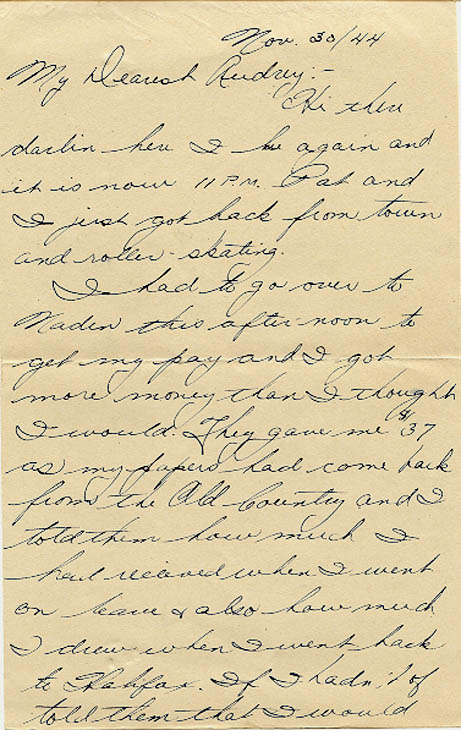 Nov. 30/44
My Dearest Audrey:-
Hi there
darlin here I be again and
it is now 11 P.M. Pat and
I just got back from town
and roller-skating.
I had to go over to
Naden this afternoon to
get my pay and I got
more money than I thought
I would. They gave me $37
as my papers had come back
from the Old Country and I
told them how much I
had recieved when I went
on leave & also how much
I drew when I went back
to Halifax. If I hadn't of
told them that I would